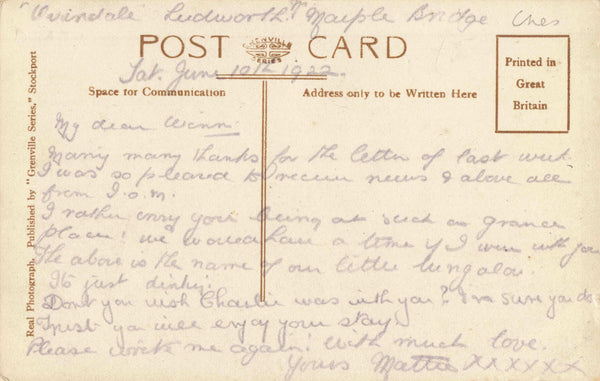 "Overdale" Ludworth Nr Marple Bridge Ches
POST CARD
GRENVILLE SERIES
Printed in Great Britain
Sat. June 10th 1922.
Space for Communication
Address only to be Written Here
Real Photograph. Published by "Grenville Series," Stockport
My dear Winn:
Many many thanks for the letter of last week
I was so pleased to receive news & above all
from I.o.m.
I rather envy you being at such a grand
place! we would have a time if I were with you
The above is the name of our little bungalow.
It's just dinky!
Don't you wish Charlie was with you? I'm sure you do.
Trust you will enjoy your stay.
Please write me again! With much love.
Yours Mattie xxxxxx